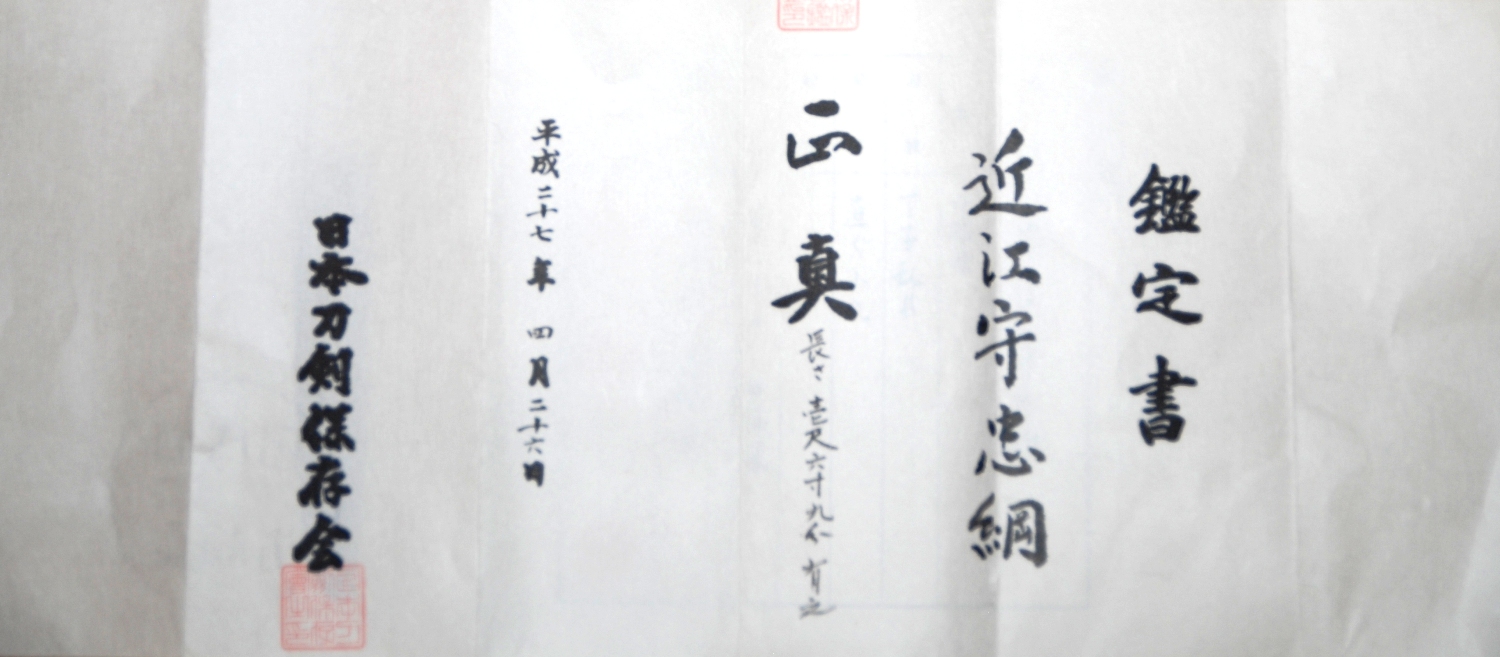 鑑定書
近江守忠綱
正真
長さ壱尺六寸九分 有之
平成二十七年 四月二十六日
日本刀剣保存会